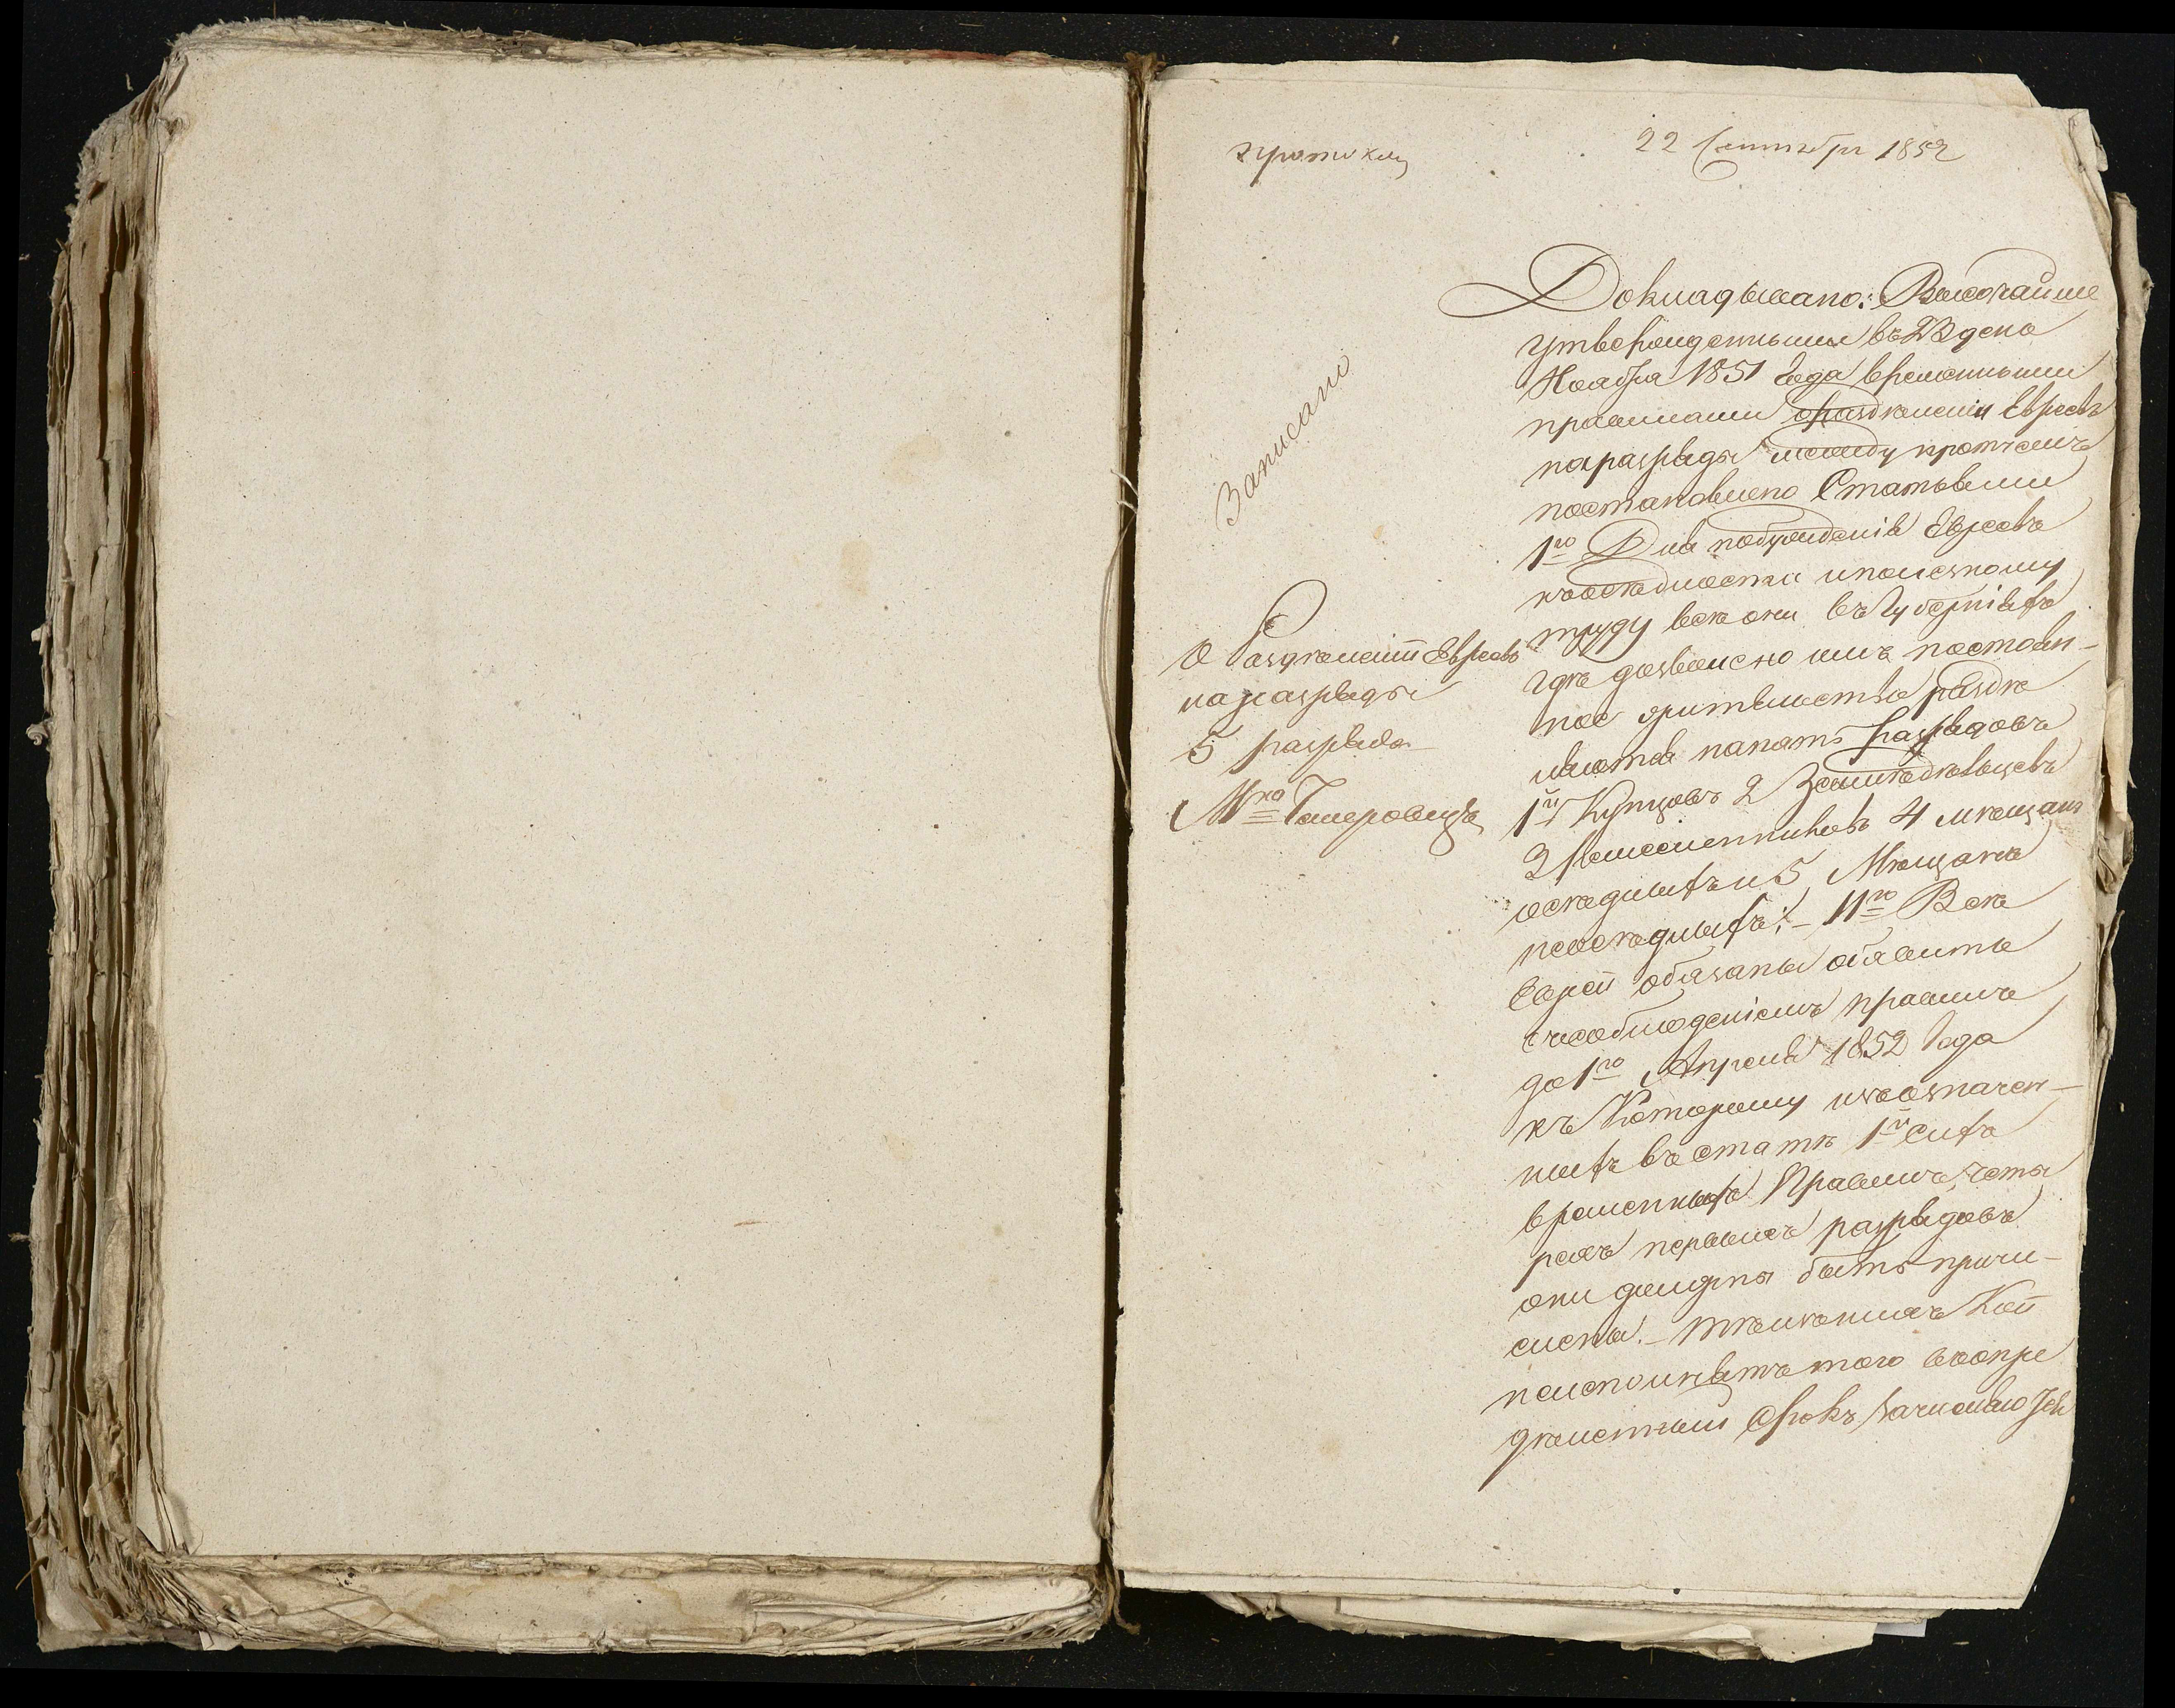 протокол
22 Сентября 1852
Записано
О Разделении Евреев
на разряды
5 разряда
М<sup>ко</sup>
Докладывано: Высочайше
утвержденными въ 23 день
Ноября 1851 года временными
правилами о разделении Евреевъ
на разряды между протчимъ
постановлено Статьями
1<sup>ю</sup> Для побуждения Евреевъ
къ оседлости и полезному
труду все они въ Губернияхъ
где дозволено имъ постоян-
ное жительство разде
ляются на пять разрядовъ
1<sup>й</sup> Купцовъ 2 Земледельцевъ
3 Ремесленниковъ 4 мещанъ
оседлыхъ и 5 Мещанъ
неоседлыхъ; 11<sup>ю</sup> Все
Евреи обязаны объявить
съ соблюдениемъ правилъ
до 1<sup>го</sup> Апреля 1852 года
къ Которому изъ означен-
ныхъ въ статье 1<sup>й</sup> сихъ
временныхъ Правилъ, четы
рехъ первыхъ разрядовъ
они должны быть причи-
слены. Те изъ нихъ Кои
не исполнятъ того въ опре
деленный Срокъ